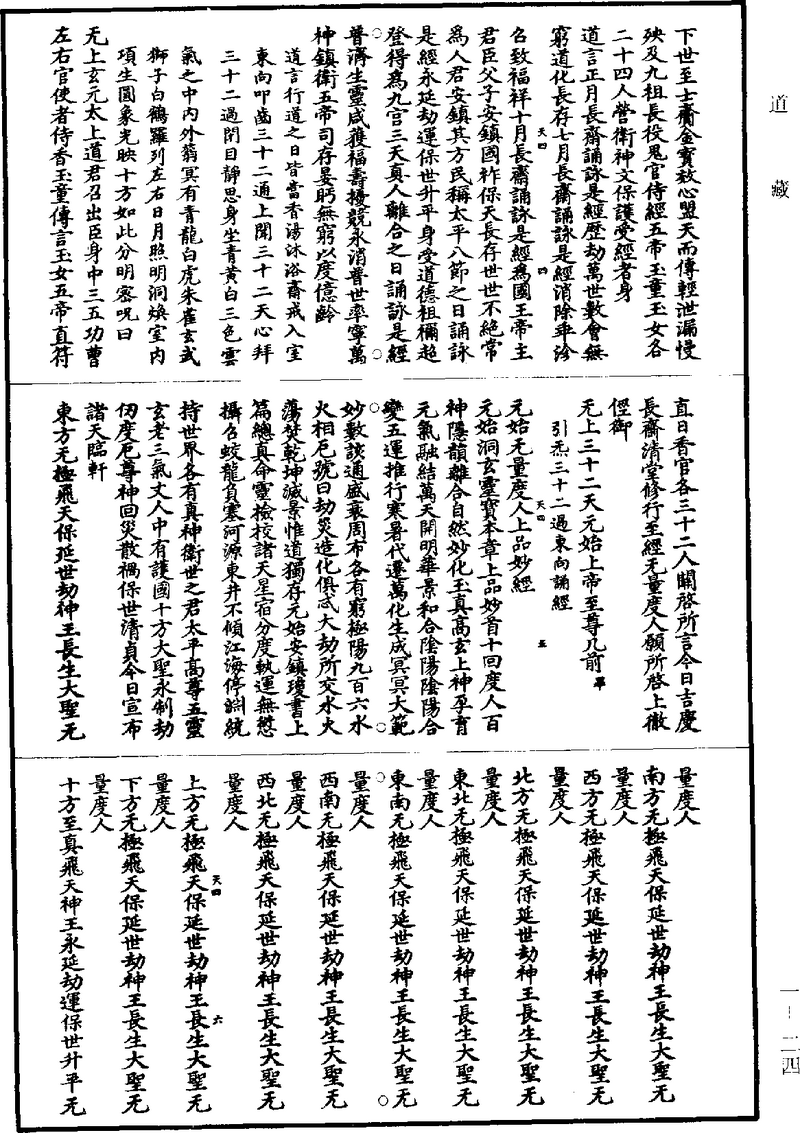 道藏
下世至士齎金寶效心盟天而傳輕泄漏慢
殃及九祖長役鬼官侍經五帝玉童玉女各
二十四人營衛神文保護受經者身
道言正月長齋誦詠是經歷劫萬世數會無
窮道化長存七月長齋誦詠是經消除乖沴
天四 四
召致福祥十月長齋誦詠是經爲國王帝主
君臣父子安鎮國祚保天長存世世不絶常
爲人君安鎮其方民稱太平八節之日誦詠
是經永延劫運保世升平身受道德祖禰超
登得爲九官三天真人離合之日誦詠是經
普濟生靈咸獲福壽擾競永消普世率寧萬
神鎮衛五帝司存晏眄無窮以度億齡
道言行道之日皆當香湯沐浴齋戒入室
東向叩齒三十二通上聞三十二天心拜
三十二過閉目靜思身坐青黃白三色雲
氣之中內外蓊冥有青龍白虎朱雀玄武
獅子白鶴羅列左右日月照明洞煥室內
項生圓象光映十方如此分明密呪曰
无上玄元太上道君召出臣身中三五功曹
左右官使者侍香玉童傳言玉女五帝直符
直日香官各三十二人關啓所言今日吉慶
長齋清堂修行至經无量度人願所啓上徹
徑御
无上三十二天元始上帝至尊几前畢
引炁三十二過東向誦經
天四 五
元始无量度人上品妙經
元始洞玄靈寶本章上品妙首十回度人百
神隱韻離合自然妙化玉真高玄上神孕育
元氣融結萬天開明華景和合陰陽陰陽合
變五運推行寒暑代遷萬化生成冥冥大範
妙數該通盛衰周布各有窮極陽九百六水
火相厄號曰劫災造化俱忒大劫所交水火
蕩焚乾坤滅景惟道獨存元始安鎮瓊書上
篇總真命靈檢校諸天星宿分度執運無愆
攝召蛟龍負塞河源東井不傾江海停淵統
持世界各有真神衛世之君太平高尊五靈
玄老三氣丈人中有護國十方大聖永制劫
仞度厄尊神回災散禍保世清貞今日宣布
諸天臨軒
東方无極飛天保延世劫神王長生大聖无
量度人
南方无極飛天保延世劫神王長生大聖无
量度人
西方无極飛天保延世劫神王長生大聖无
量度人
北方无極飛天保延世劫神王長生大聖无
量度人
東北无極飛天保延世劫神王長生大聖无
量度人
東南无極飛天保延世劫神王長生大聖无
量度人
西南无極飛天保延世劫神王長生大聖无
量度人
西北无極飛天保延世劫神王長生大聖无
量度人
上方无極飛天保延世劫神王長生大聖无
天四 六
量度人
下方无極飛天保延世劫神王長生大聖无
量度人
十方至真飛天神王永延劫運保世升平无
一－二四